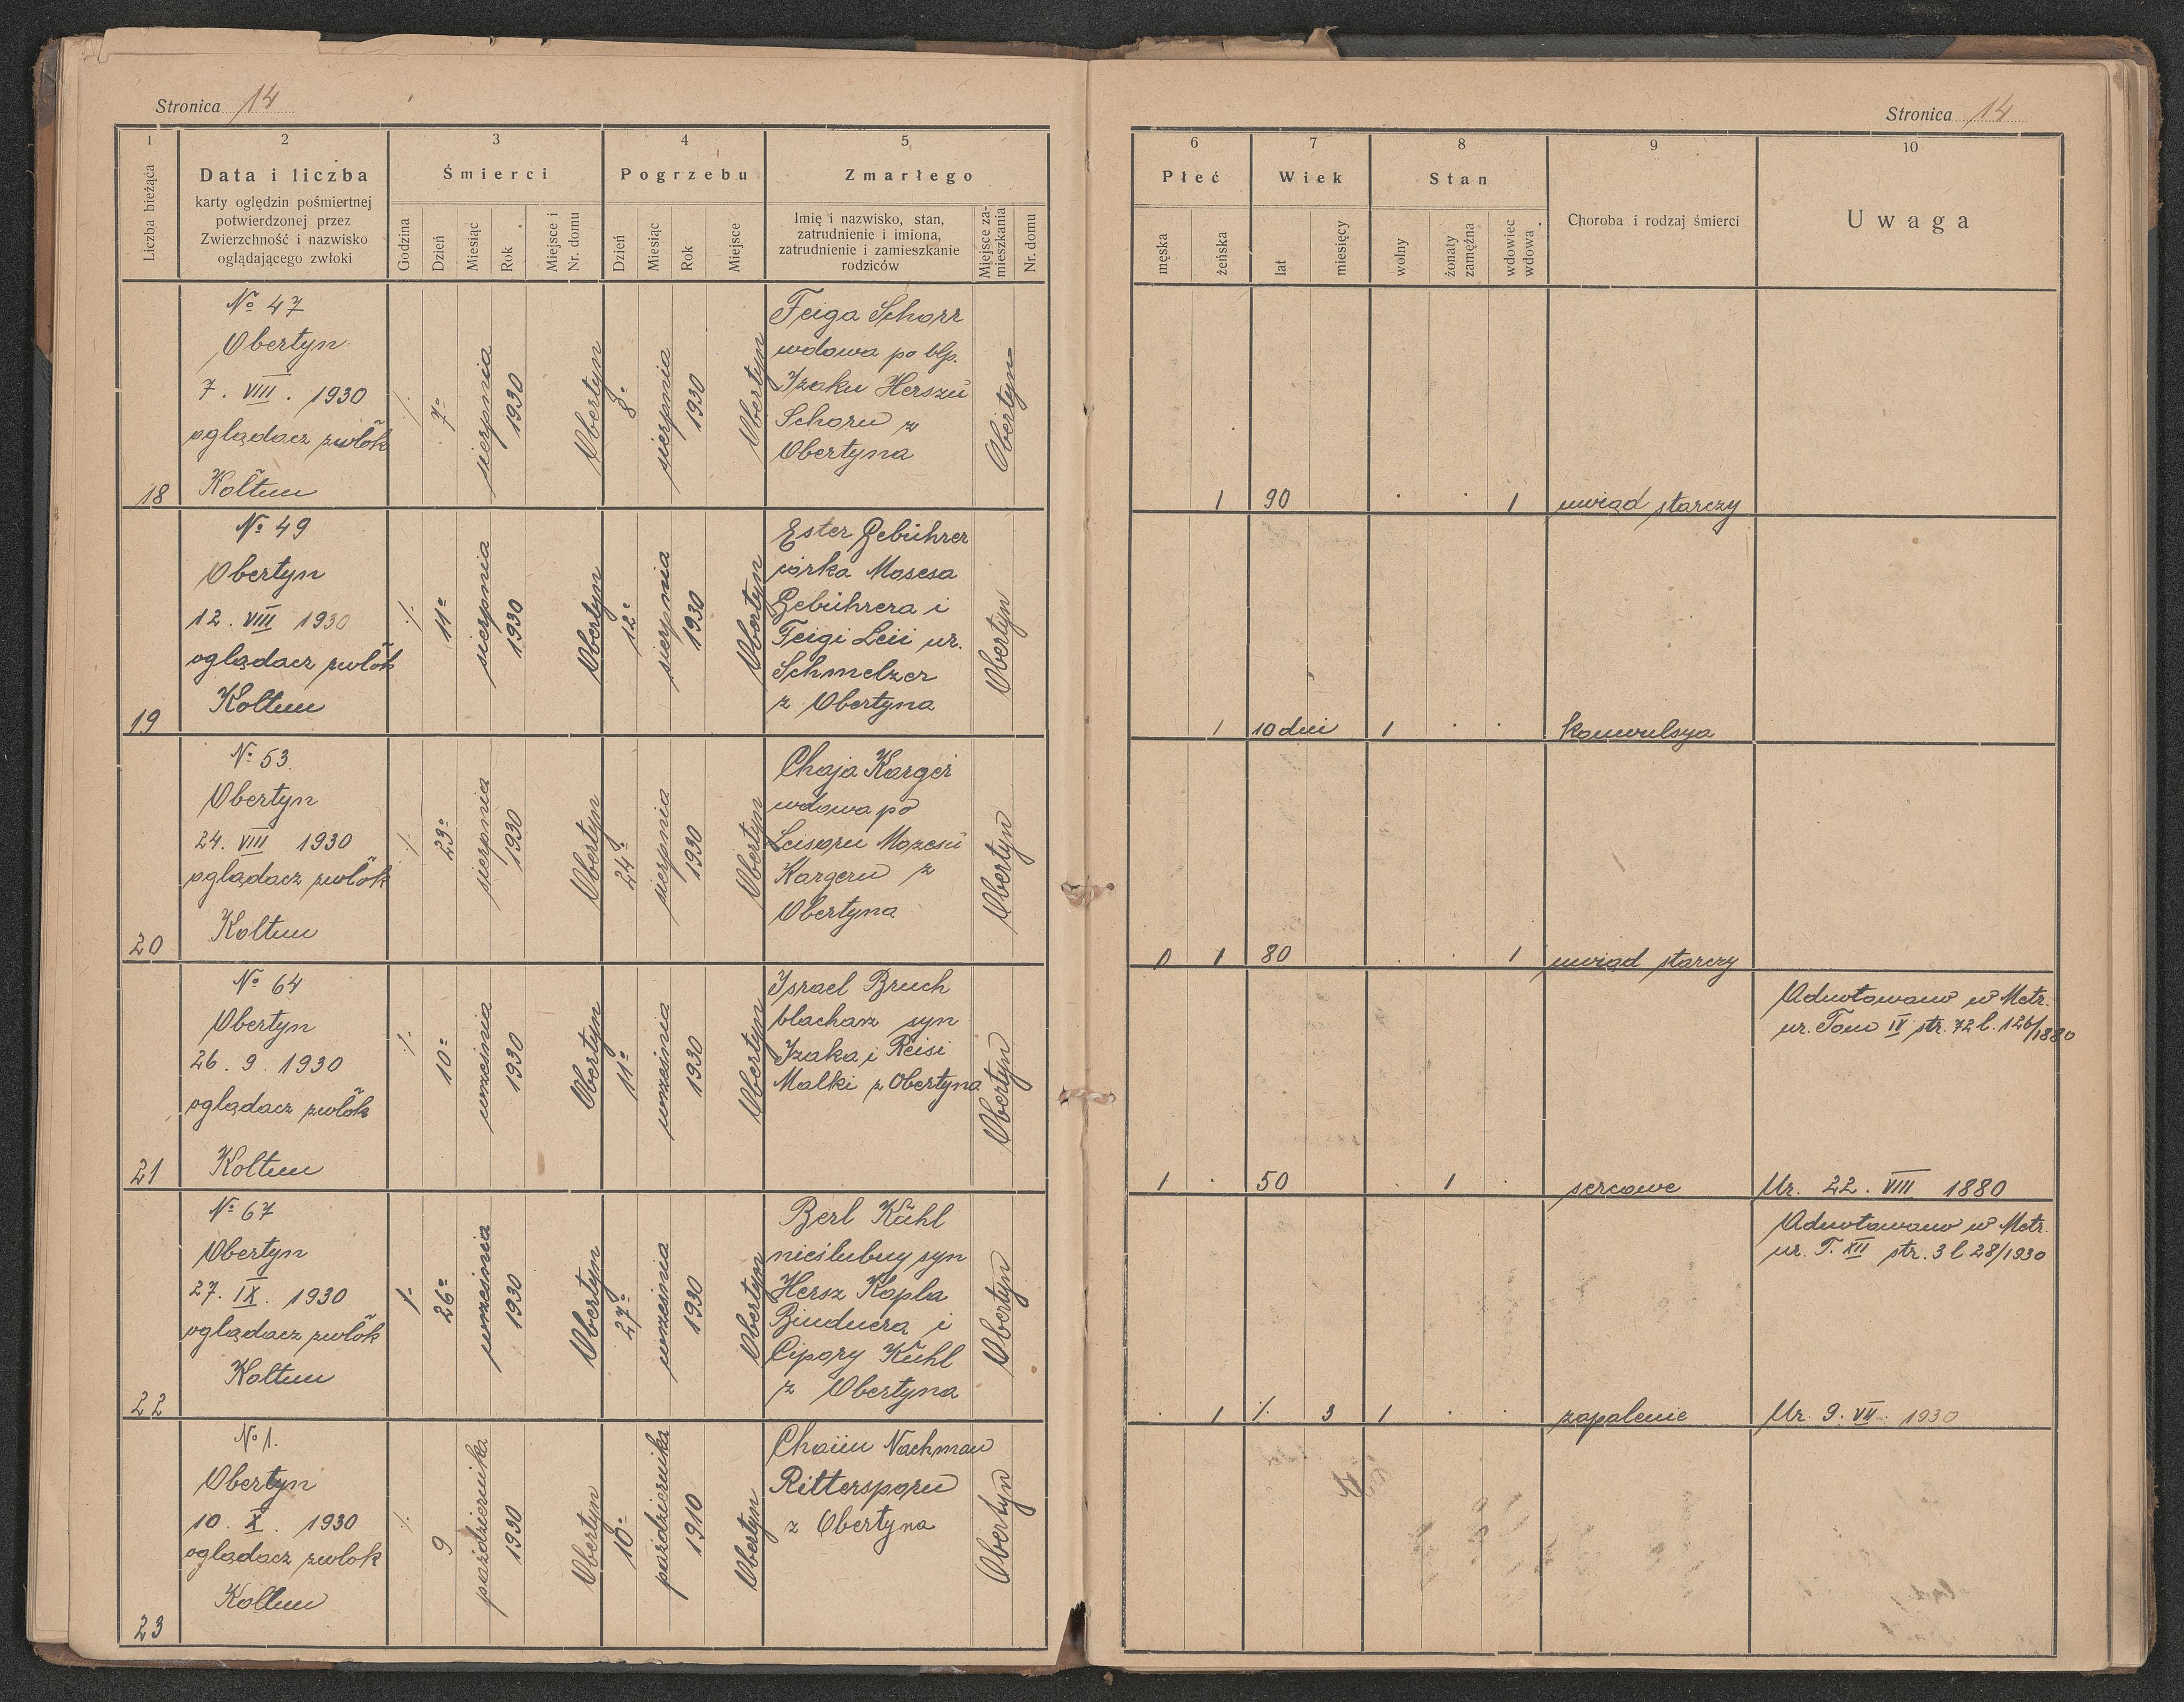 Stronica 14
1
2
3
4
5
Liczba bieżąca
Data i liczba
karty oględzin pośmiertnej
potwierdzonej przez
Zwierzchność i nazwisko
oglądającego zwłoki
Śmierci
Godzina
Dzień
Miesiąc
Rok
Miejsce i
Nr. domu
Pogrzebu
Dzień
Miesiąc
Rok
Miejsce
Zmarłego
Imię i nazwisko, stan,
zatrudnienie i imiona,
zatrudnienie i zamieszkanie
rodziców
Miejsce za-
mieszkania
Nr. domu
18
No 47
Obertyn
7. VIII. 1930
oglądacz zwłok
Koltun
7
sierpnia
1930
Obertyn
8
sierpnia
1930
Obertyn
Feiga Schorr
wdowa po błp.
Izaku Herszu
Schoru z
Obertyna
Obertyn
19
No 49
Obertyn
12. VIII 1930
oglądacz zwłok
Koltun
11
sierpnia
1930
Obertyn
12
sierpnia
1930
Obertyn
Ester Gebührer
córka Mosesa
Gebührera i
Feigi Leii ur.
Schmelzer
z Obertyna
Obertyn
20
No 53.
Obertyn
24. VIII 1930
oglądacz zwłok
Koltun
23
sierpnia
1930
Obertyn
24
sierpnia
1930
Obertyn
Chaja Karger
wdowa po
Leisoru Mozesu
Kargeru z
Obertyna
Obertyn
21
No 64
Obertyn
26. 9. 1930
oglądacz zwłok
Koltun
10
września
1930
Obertyn
11
września
1930
Obertyn
Israel Bruch
blacharz syn
Izaka i Reisi
Malki z Obertyna
Obertyn
22
No 67
Obertyn
27. IX. 1930
oglądacz zwłok
Koltun
26
września
1930
Obertyn
27
września
1930
Obertyn
Berl Kühl
nieślubny syn
Hersz Kopla
Bindnera i
Cipory Kühl
z Obertyna
Obertyn
23
No 1.
Obertyn
10. X. 1930
oglądacz zwłok
Koltun
9
października
1930
Obertyn
10
października
1910
Obertyn
Chaim Nachman
Rittersporn
z Obertyna
Obertyn
Stronica 14
6
7
8
9
10
Płeć
męska
żeńska
Wiek
lat
miesięcy
Stan
wolny
żonaty
zamężna
wdowiec
wdowa
Choroba i rodzaj śmierci
Uwaga
1 90 . . 1 uwiąd starczy
1 10 dni 1 . . konwulsya
0 1 80 . . 1 uwiąd starczy
Adnotowano w Metr.
ur. Tom IV str. 72 l. 126/1880
1 . 50 . 1 . sercowe Ur. 22. VIII 1880
Adnotowano w Metr.
ur. T. XII str. 3 l 28/1930
. 1 % 3 1 . . zapalenie Ur. 9. VII. 1930